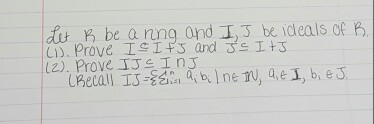 Let R be a ring and I, J be ideals of R.
(1). Prove I ⊆ I+J and J ⊆ I+J
(2). Prove IJ ⊆ I ∩ J
(Recall IJ = {Σⁿᵢ₌₁ aᵢbᵢ | n ∈ ℕ, aᵢ ∈ I, bᵢ ∈ J.